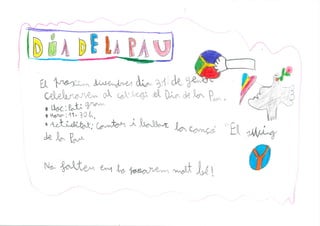 DÍA DE LA PAU
El pròxim divendres dia 31 de gener
celebrarem al col·legi el Dia de la Pau.
• lloc: Pati gran
• Hora: 11:30 h,
• Actividtat: Cantar i ballar la cançó "El
de la Pau
No falteu ens la passarem molt bé!